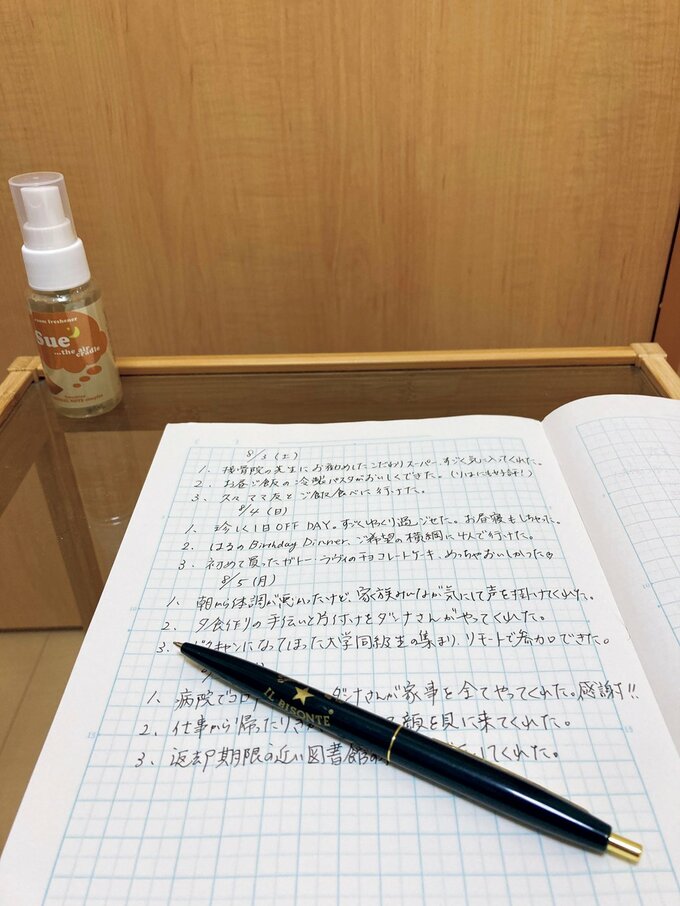 room freshener
Sue
...the air
cradle
8/3 (土)
1. 接骨院の先生にお勧めしたこだわりスーパー、すごく気に入ってくれた。
2. お昼ご飯の冷製パスタがおいしくできた。(りほにも好評!)
3. 久々ママ友とご飯食べに行けた。
8/4 (日)
1. 珍しく1日OFF DAY。すごくゆっくり過ごせた。お昼寝もしちゃった。
2. はるのBirthday Dinner、ご希望の横綱に4人で行けた。
3. 初めて買ったガトー・ラヴィのチョコレートケーキ、めっちゃおいしかった
8/5 (月)
1. 朝から体調が悪かったけど、家族みんなが気にして声を掛けてくれた。
2. 夕食作りの手伝いと片付けをダンナさんがやってくれた。
3. ドキャンになってしまった大学同級生の集まり、リモートで参加できた。
1. 病院でコロ ダンナさんが家事を全てやってくれた。感謝!!
2. 仕事から帰ったりさ 顔を見に来てくれた。
3. 返却期限の近い図書館の してくれた。
IL BISONTE